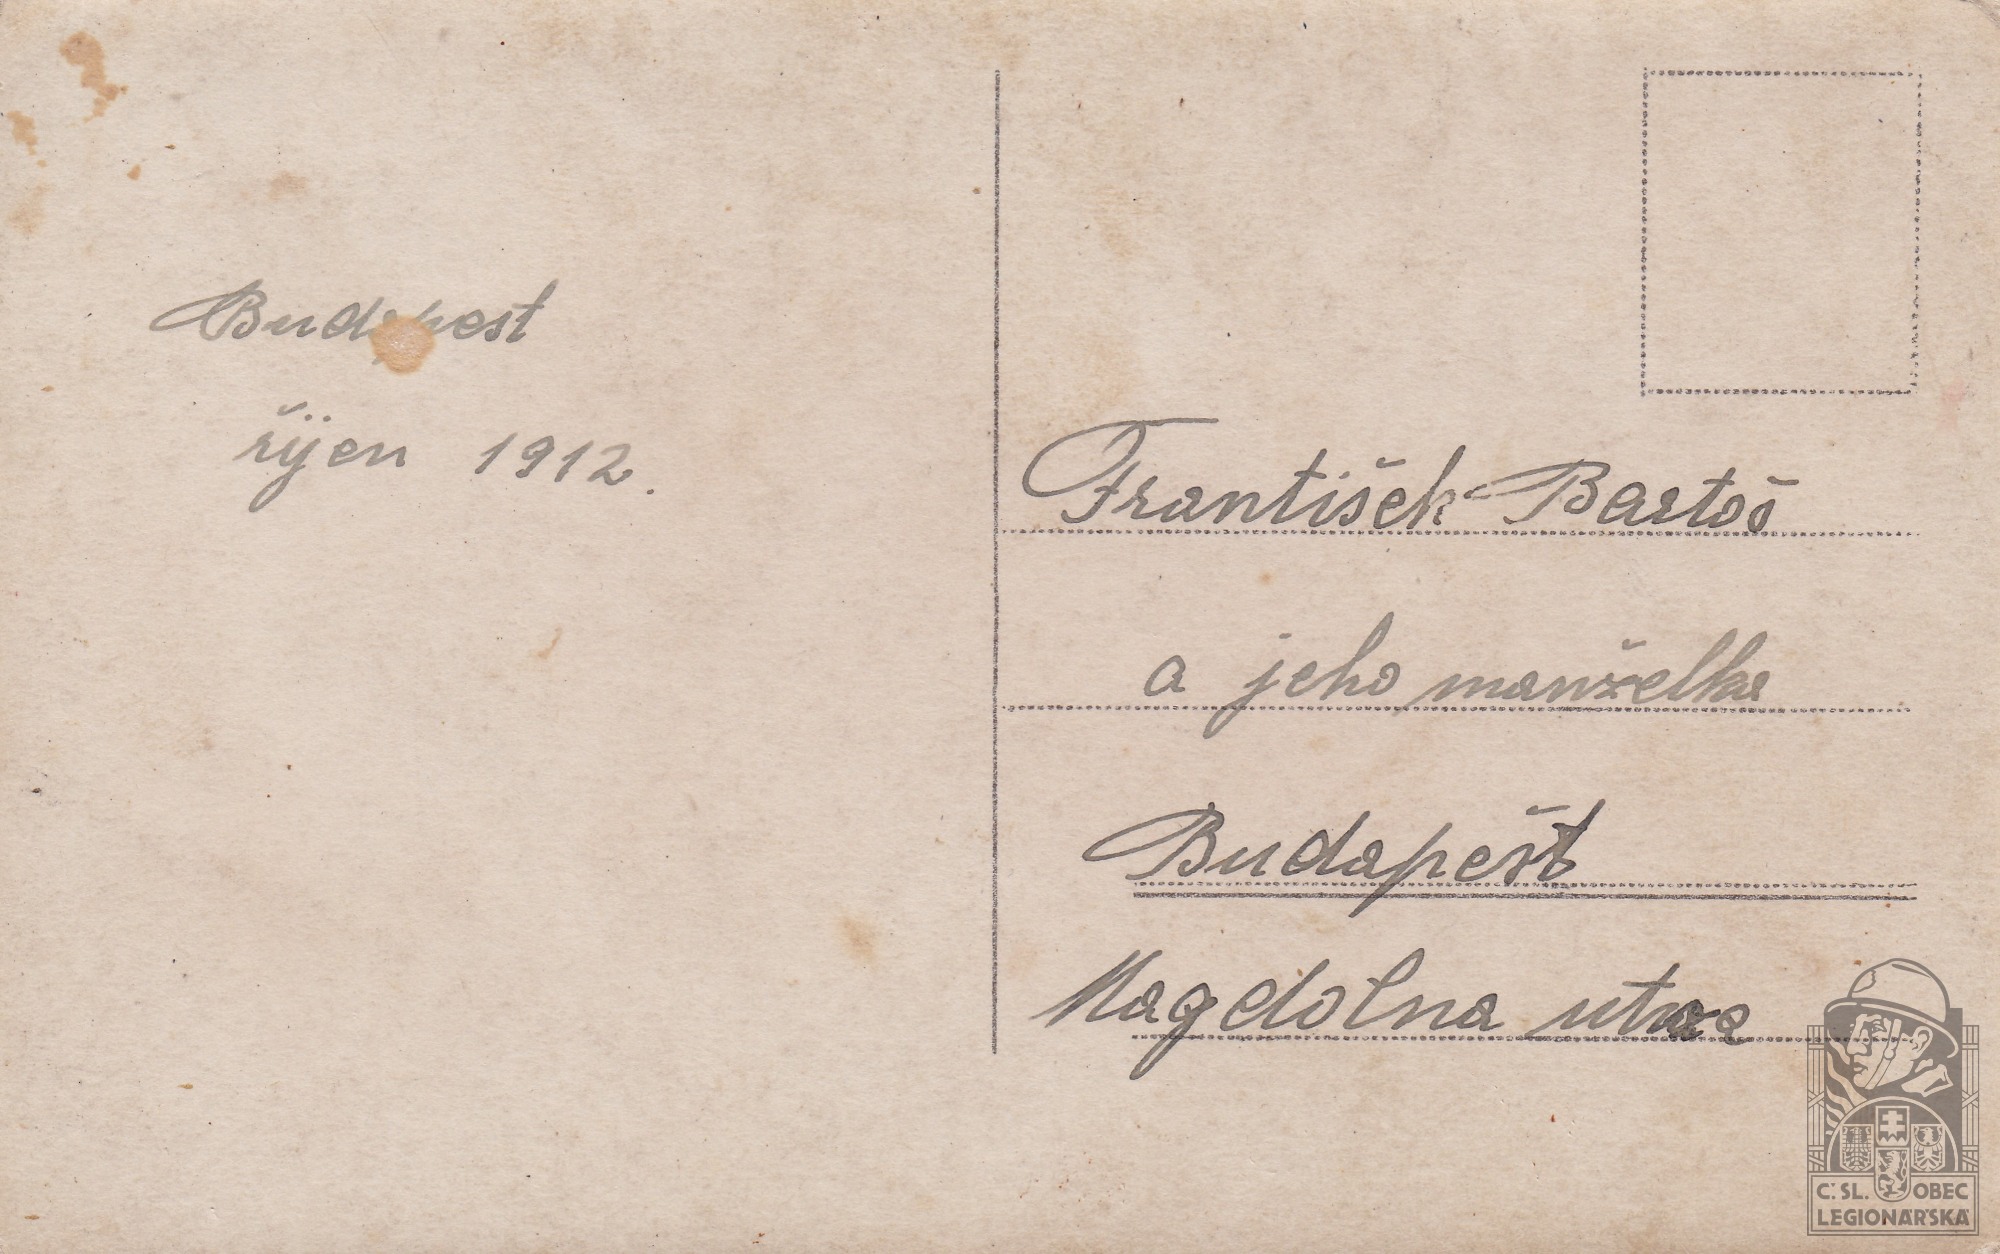 Budapest
říjen 1912.
František Bartoš
a jeho manželka
Budapešt
Magdolna utca
Č. SL. OBEC
LEGIONÁŘSKÁ